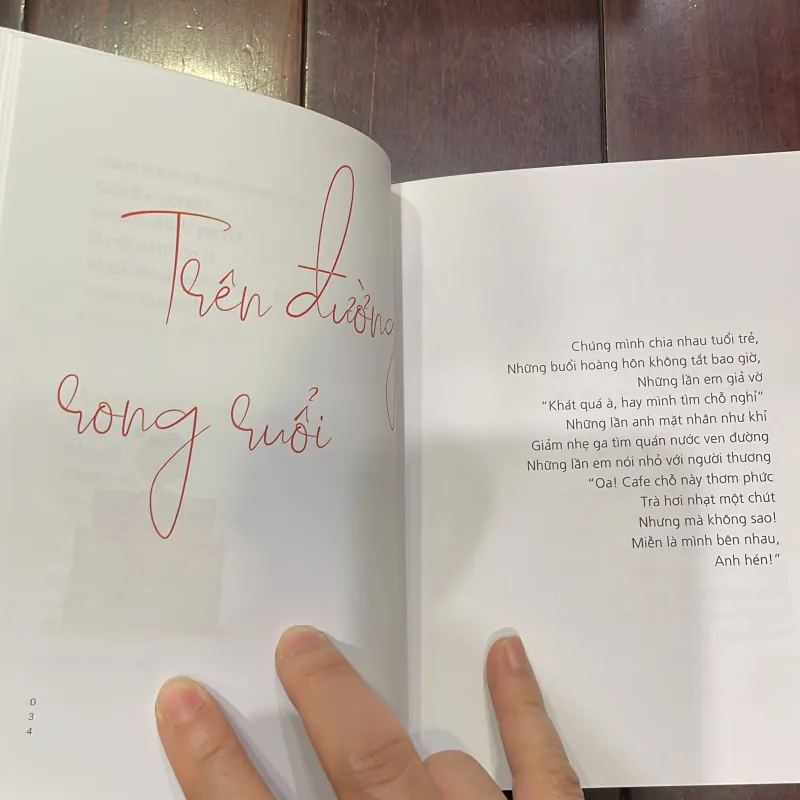 Trên đường
rong ruổi
0
3
4
Chúng mình chia nhau tuổi trẻ,
Những buổi hoàng hôn không tắt bao giờ,
Những lần em giả vờ
“Khát quá à, hay mình tìm chỗ nghỉ”
Những lần anh mặt nhăn như khỉ
Giảm nhẹ ga tìm quán nước ven đường
Những lần em nói nhỏ với người thương
“Oa! Cafe chỗ này thơm phức
Trà hơi nhạt một chút
Nhưng mà không sao!
Miễn là mình bên nhau,
Anh hén!”